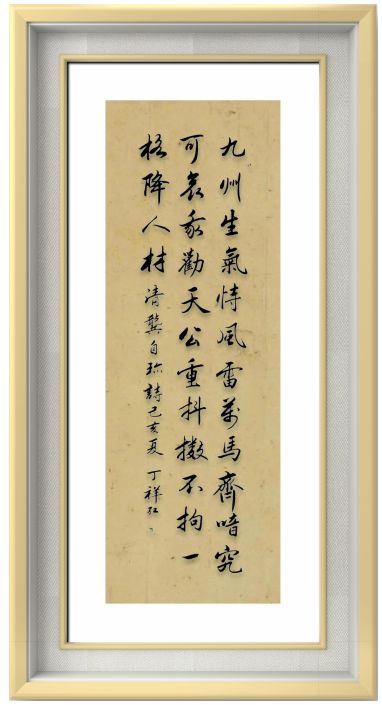 九州生氣恃風雷萬馬齊喑究
可哀我勸天公重抖擻不拘一
格降人材 清龔自珎詩己亥夏 丁祥红